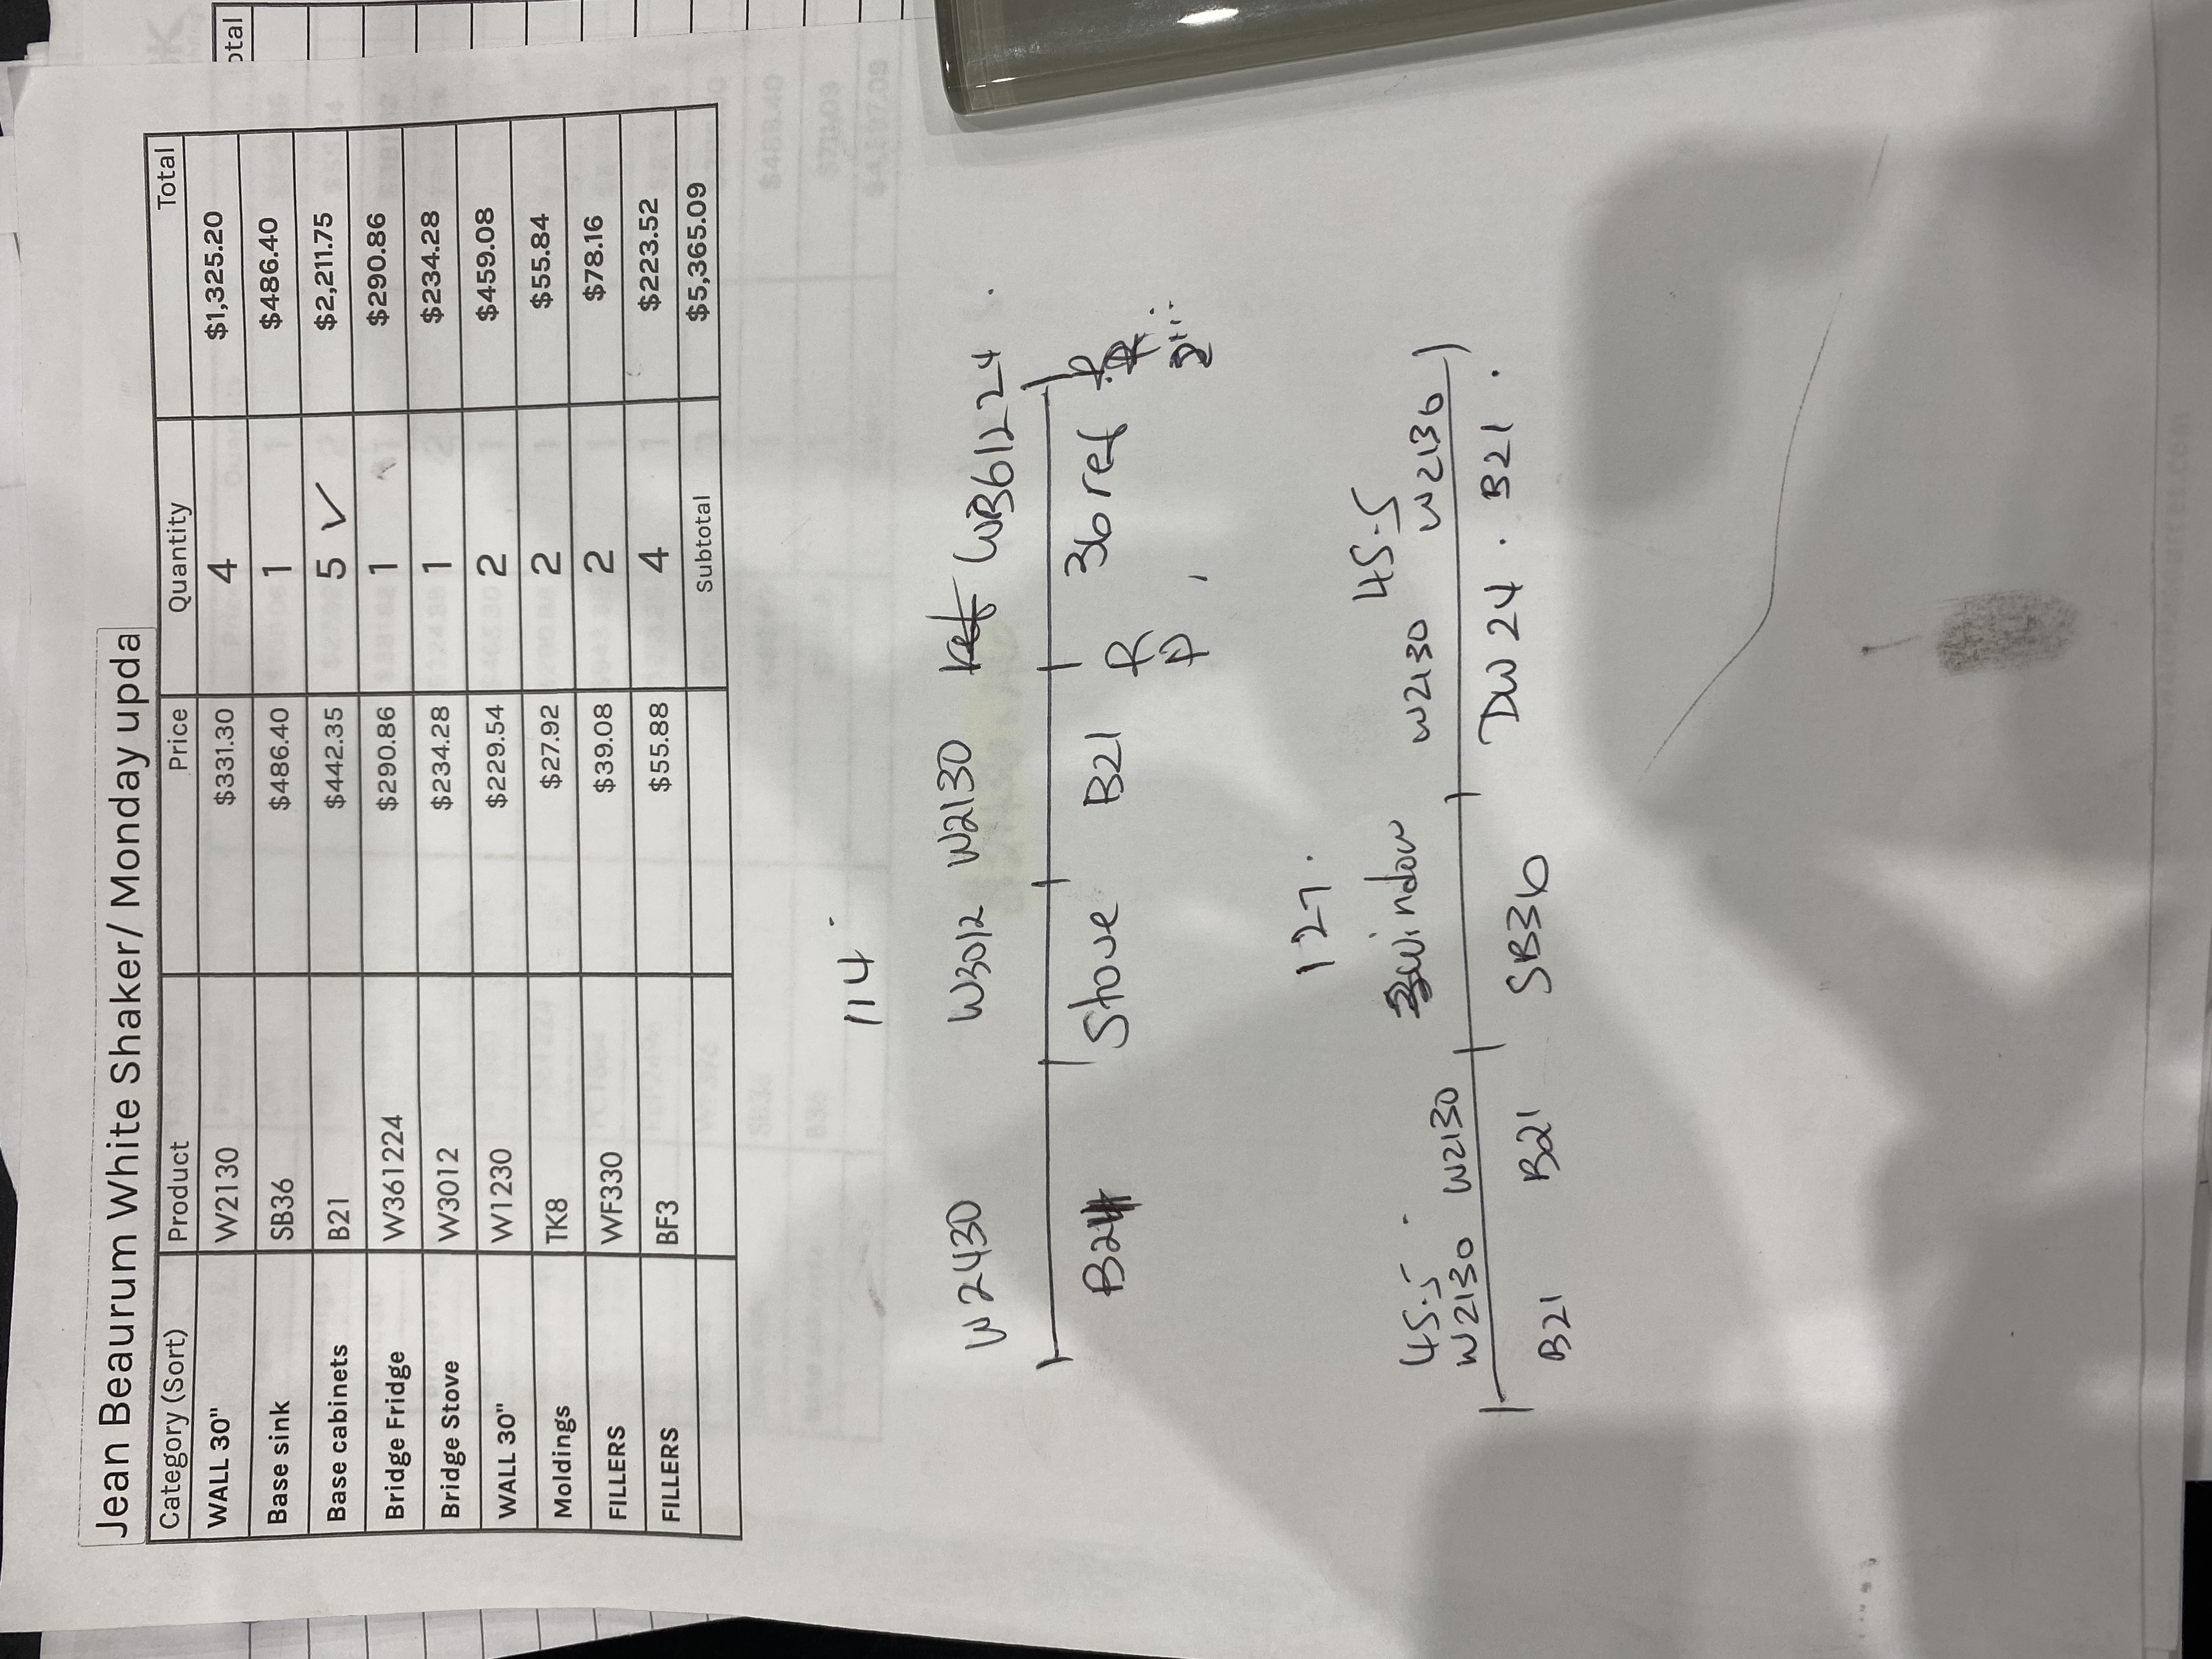 otal
Jean Beaurum White Shaker/ Monday upda
Category (Sort) Product Price Quantity Total
WALL 30" W2130 $331.30 4 $1,325.20
Base sink SB36 $486.40 1 $486.40
Base cabinets B21 $442.35 5 ✓ $2,211.75
Bridge Fridge W361224 $290.86 1 $290.86
Bridge Stove W3012 $234.28 1 $234.28
WALL 30" W1230 $229.54 2 $459.08
Moldings TK8 $27.92 2 $55.84
FILLERS WF330 $39.08 2 $78.16
FILLERS BF3 $55.88 4 $223.52
Subtotal $5,365.09
114
W2430 W3012 W2130 W361224
Stove B21 36 ref
R P
127.
45.5 window 45.5
W2130 W2130 W2130 W2130
B21 B21 SB36 DW 24 . B21 .